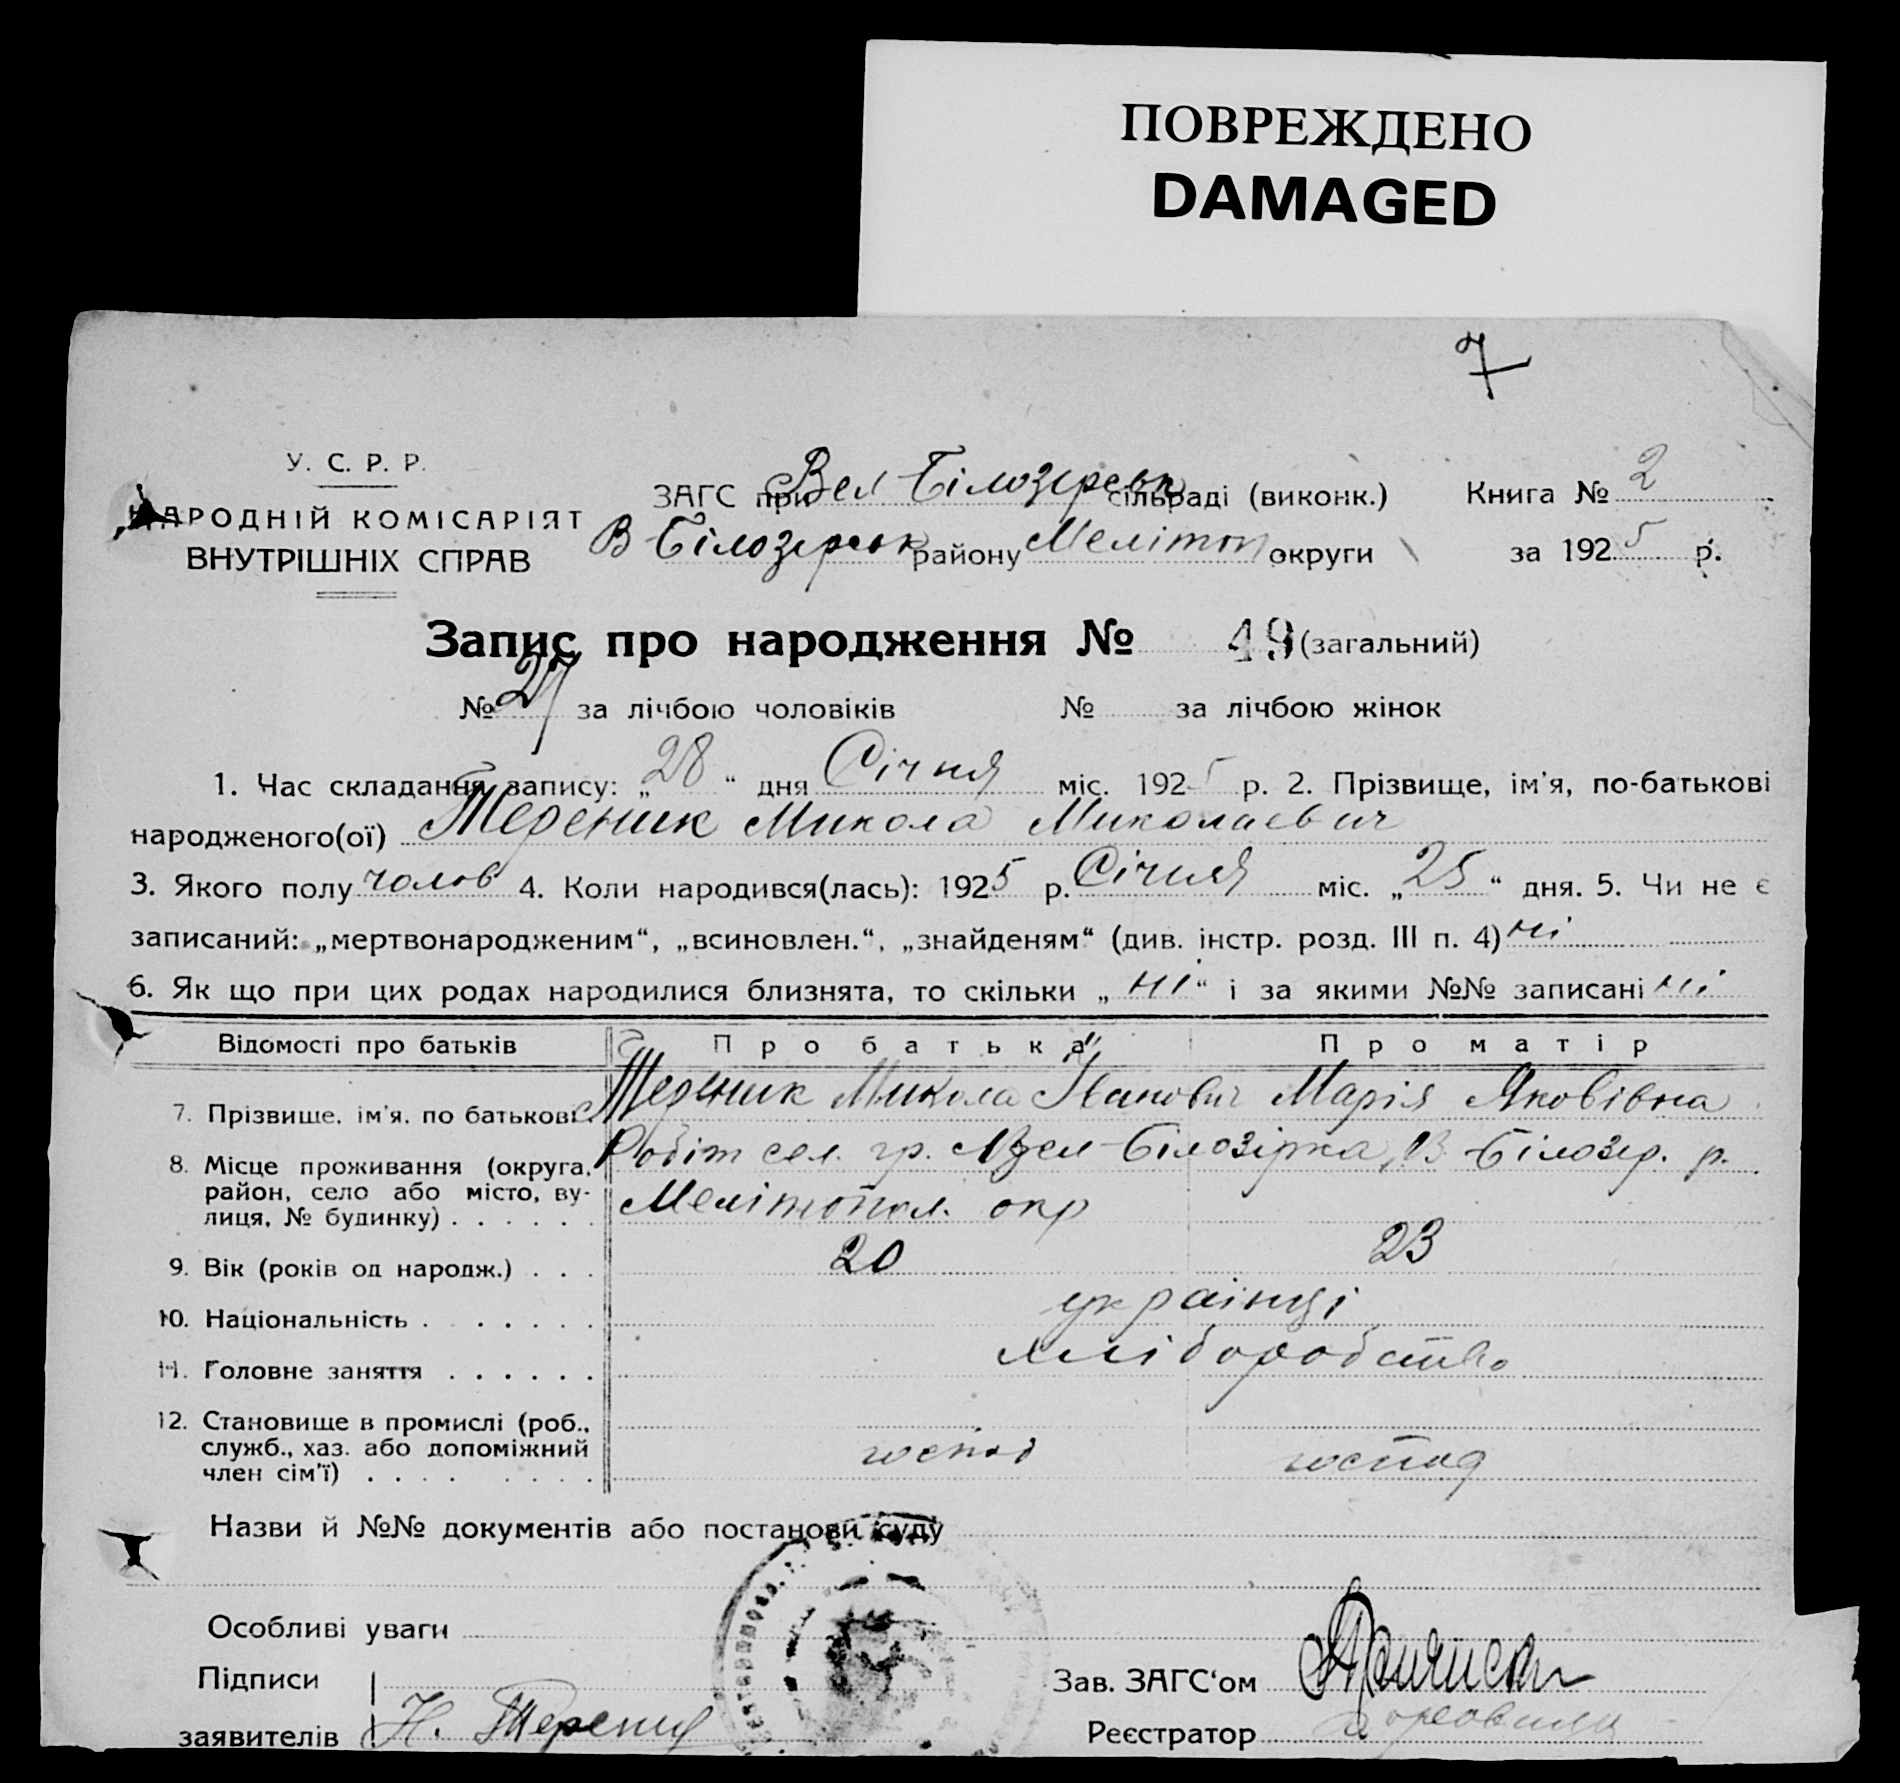 ПОВРЕЖДЕНО
DAMAGED
7
У. С. Р. Р.
НАРОДНІЙ КОМІСАРІЯТ
ВНУТРІШНІХ СПРАВ
ЗАГС при Вел Білозерськ сільраді (виконк.)
В Білозерськ району Мелітоп округи
Книга № 2
за 1925 р.
Запис про народження № 49 (загальний)
№ 27 за лічбою чоловіків № за лічбою жінок
1. Час складання запису: „28“ дня Січня міс. 1925 р. 2. Прізвище, ім'я, по-батькові
народженого(ої) Тереник Микола Миколаевич
3. Якого полу чолов 4. Коли народився(лась): 1925 р. Січня міс. „25“ дня. 5. Чи не є
записаний: „мертвонародженим“, „всиновлен.“, „знайденям“ (див. інстр. розд. III п. 4) ні
6. Як що при цих родах народилися близнята, то скільки „ні“ і за якими №№ записані ні
Відомості про батьків Про батька Про матір
7. Прізвище, ім'я, по батькові. Тереник Микола Іванович Марія Яковівна
8. Місце проживання (округа, район, село або місто, ву-
лиця, № будинку) . . . . . . Робіт сел. гр. Вел-Білозірка, В. Білозер. р.
Мелітопол. окр
9. Вік (років од народж.) . . . 20 23
10. Національність . . . . . . українці
11. Головне заняття . . . . . . хліборобство
12. Становище в промислі (роб.,
служб., хаз. або допоміжний
член сім'ї) . . . . . . . . господ господ
Назви й №№ документів або постанови суду
Особливі уваги
Підписи
заявителів Н. Терени
Зав. ЗАГС‘ом
Реєстратор